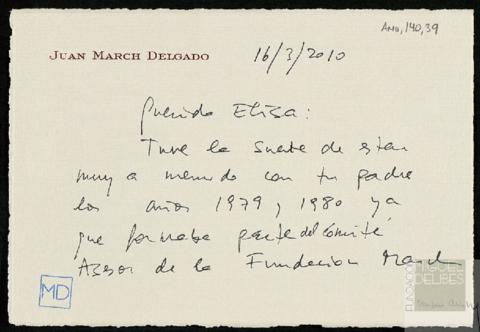 AMD, 140, 39
JUAN MARCH DELGADO
16/3/2010
Querida Elisa:
Tuve la suerte de estar
muy a menudo con tu padre
los años 1979 y 1980 ya
que formaba parte del Comité
Asesor de la Fundación March
MD
FUNDACIÓN
MIGUEL
DELIBES